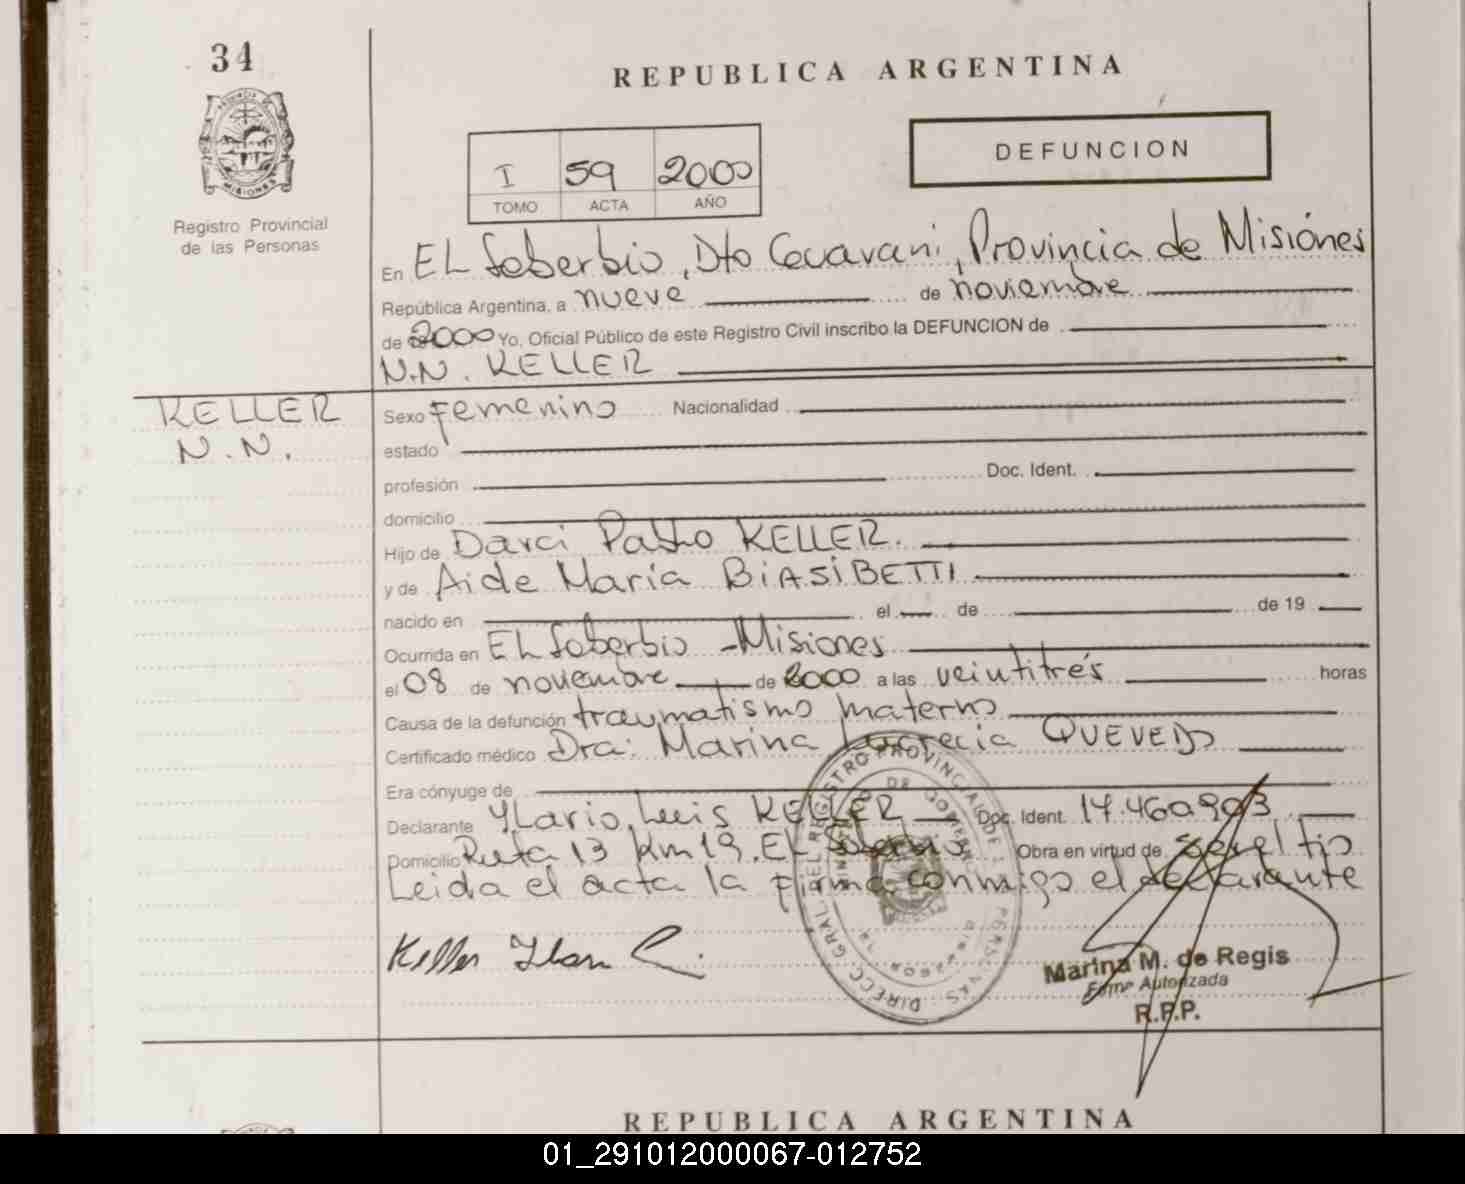 34
REPUBLICA ARGENTINA
PROVINCIA DE
MISIONES
Registro Provincial
de las Personas
I 59 2000
TOMO ACTA AÑO
DEFUNCION
En EL Soberbio, Dto Guarani, Provincia de Misiónes
República Argentina, a nueve de noviembre
de 2000 Yo, Oficial Público de este Registro Civil inscribo la DEFUNCION de
N.N. KELLER
KELLER
N.N.
Sexo Femenino Nacionalidad
estado
profesión Doc. Ident.
domicilio
Hijo de Darci Pablo KELLER.
y de Aide María BiASiBETTI
nacido en el de de 19
Ocurrida en EL Soberbio - Misiones
el 08 de noviembre de 2000 a las veintitrés horas
Causa de la defunción traumatismo materno
Certificado médico Dra: Marina Lucrecia QUEVEDO
Era cónyuge de
Declarante YLario Luis KELLER Doc. Ident. 17.460.903
Domicilio Ruta 13 Km 19. EL Soberbio Obra en virtud de ser el tio
Leida el acta la firma conmigo el declarante
Keller Ylario L.
DIRECC. GRAL. DEL REGISTRO PROVINCIAL DE L PERSONAS
MINISTERIO DE GOBIERNO
Marina M. de Regis
Firma Autorizada
R.P.P.
REPUBLICA ARGENTINA
01_291012000067-012752